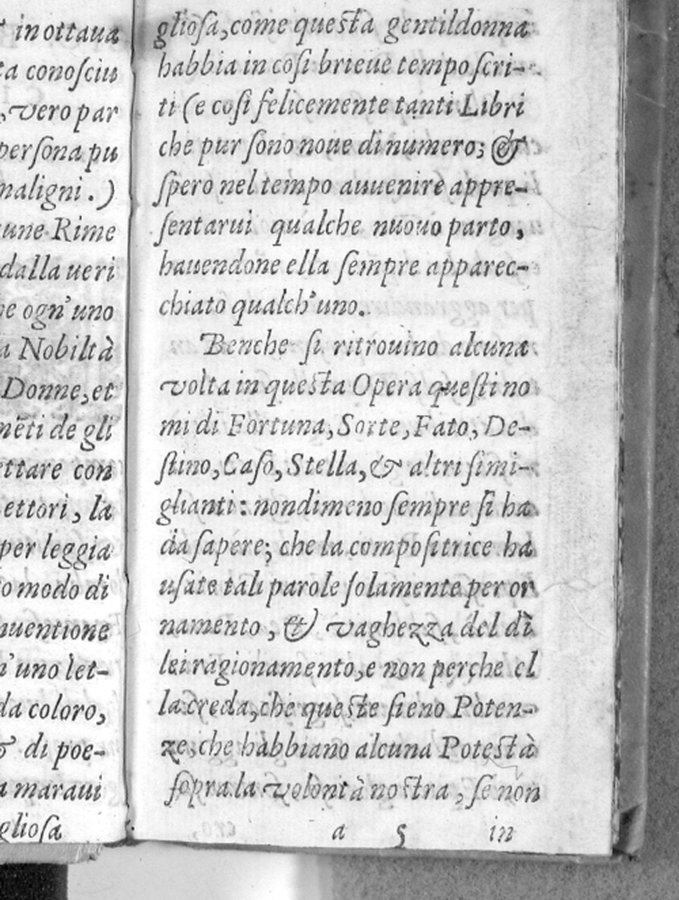 in ottaua
ta conosciu
, vero par
persona pu
maligni.)
cune Rime
dalla ueri
he ogn'uno
a Nobiltà
Donne, et
mẽti de gli
ettare con
ettori, la
per leggia
o modo di
nuentione
n'uno let-
da coloro,
& di poe-
a maraui
gliosa
gliosa, come questa gentildonna
habbia in cosi brieue tempo scri-
ti (e così felicemente tanti Libri
che pur sono noue di numero; &
spero nel tempo auuenire appre-
sentarui qualche nuouo parto,
hauendone ella sempre apparec-
chiato qualch'uno.
Benche si ritrouino alcuna
volta in questa Opera questi no
mi di Fortuna, Sorte, Fato, De-
stino, Caso, Stella, & altri simi-
glianti: nondimeno sempre si ha
da sapere; che la compositrice ha
usate tali parole solamente per or
namento, & vaghezza del di
lei ragionamento, e non perche el
la creda, che queste sieno Poten-
ze, che habbiano alcuna Potestà
sopra la volontà nostra, se non
a 5 in